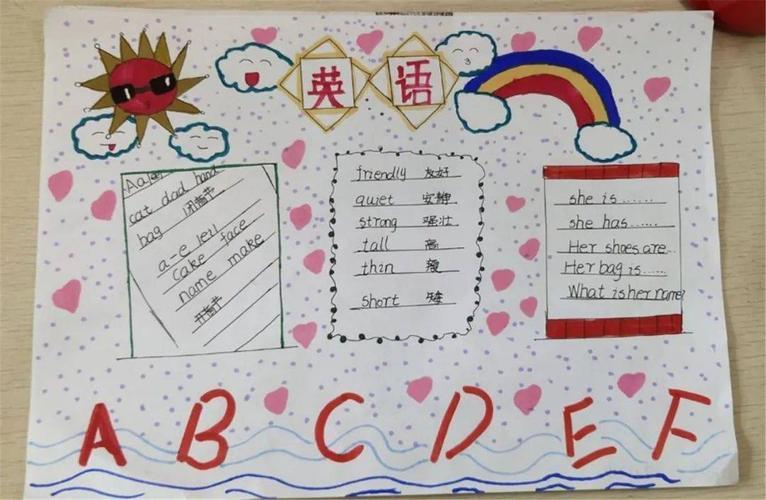 英语
Aa [æ]
cat dad hand
bag 闭音节
a-e [eɪ]
cake face
name make
开音节
friendly 友好
quiet 安静
strong 强壮
tall 高
thin 瘦
short 矮
she is......
she has......
Her shoes are...
Her bag is......
What is her name?
A B C D E F